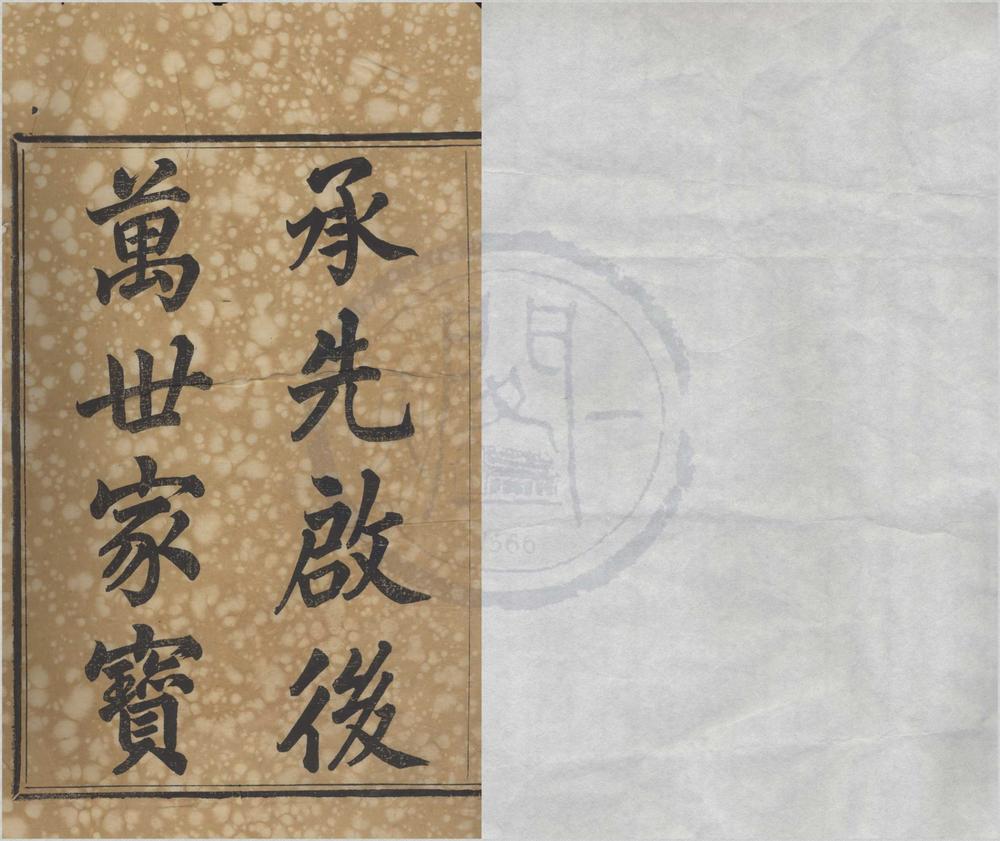 承先啟後
萬世家寶